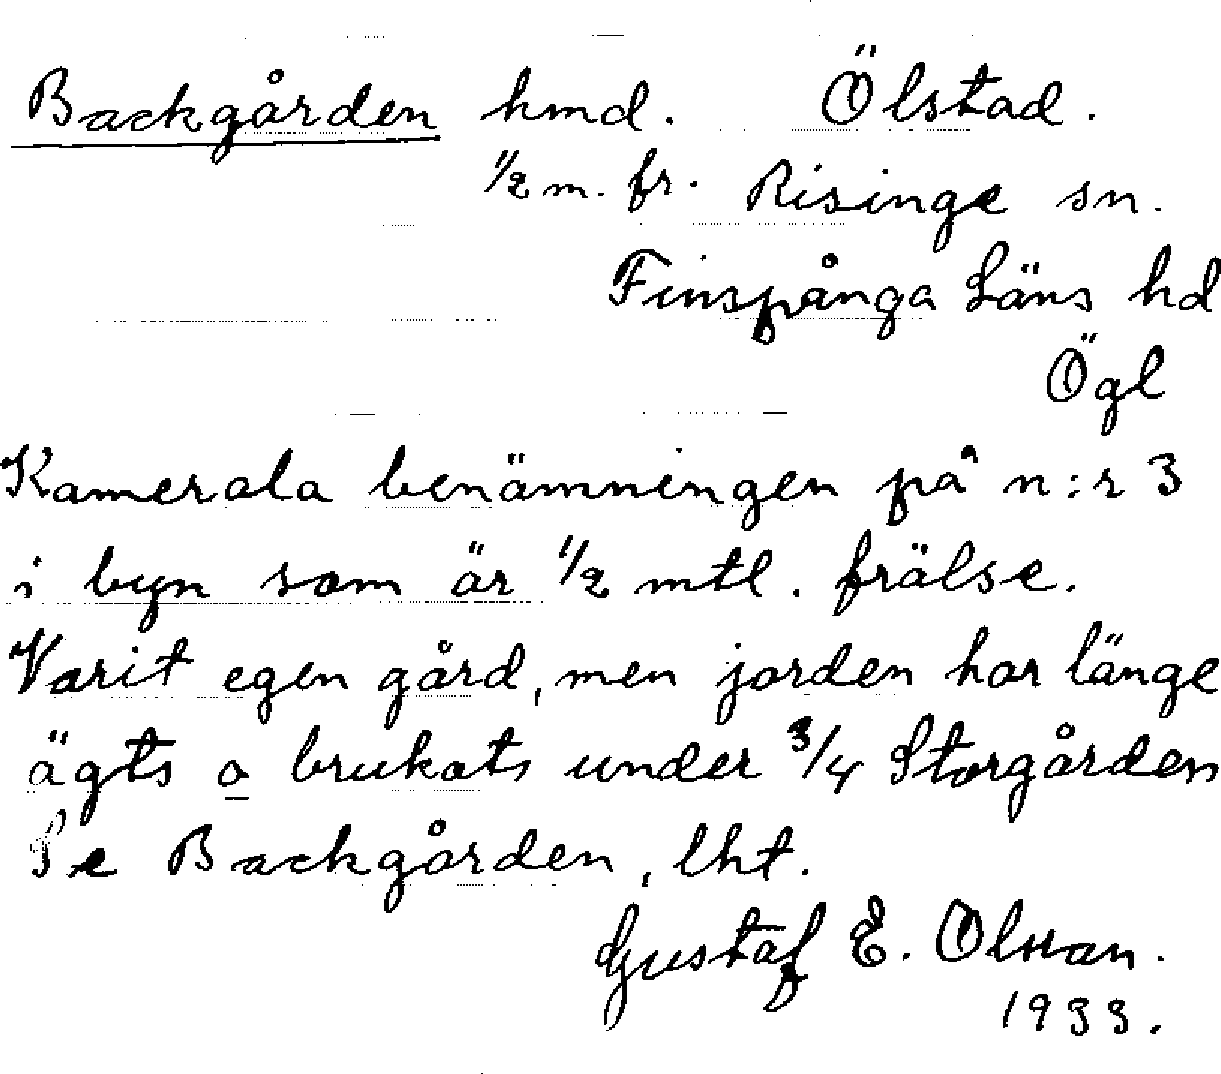 Backgården hmd. Ölstad.
1/2 m. fr. Risinge sn.
Finspånga Läns hd
Ögl
Kamerala benämningen på n:r 3
i byn som är 1/2 mtl. frälse.
Varit egen gård, men jorden har länge
ägts o brukats under 3/4 Storgården
Se Backgården, lht.
Gustaf E. Olsson.
1933.